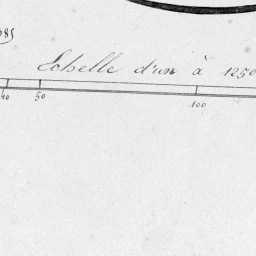 Echelle d'un à 1250
40 50 100